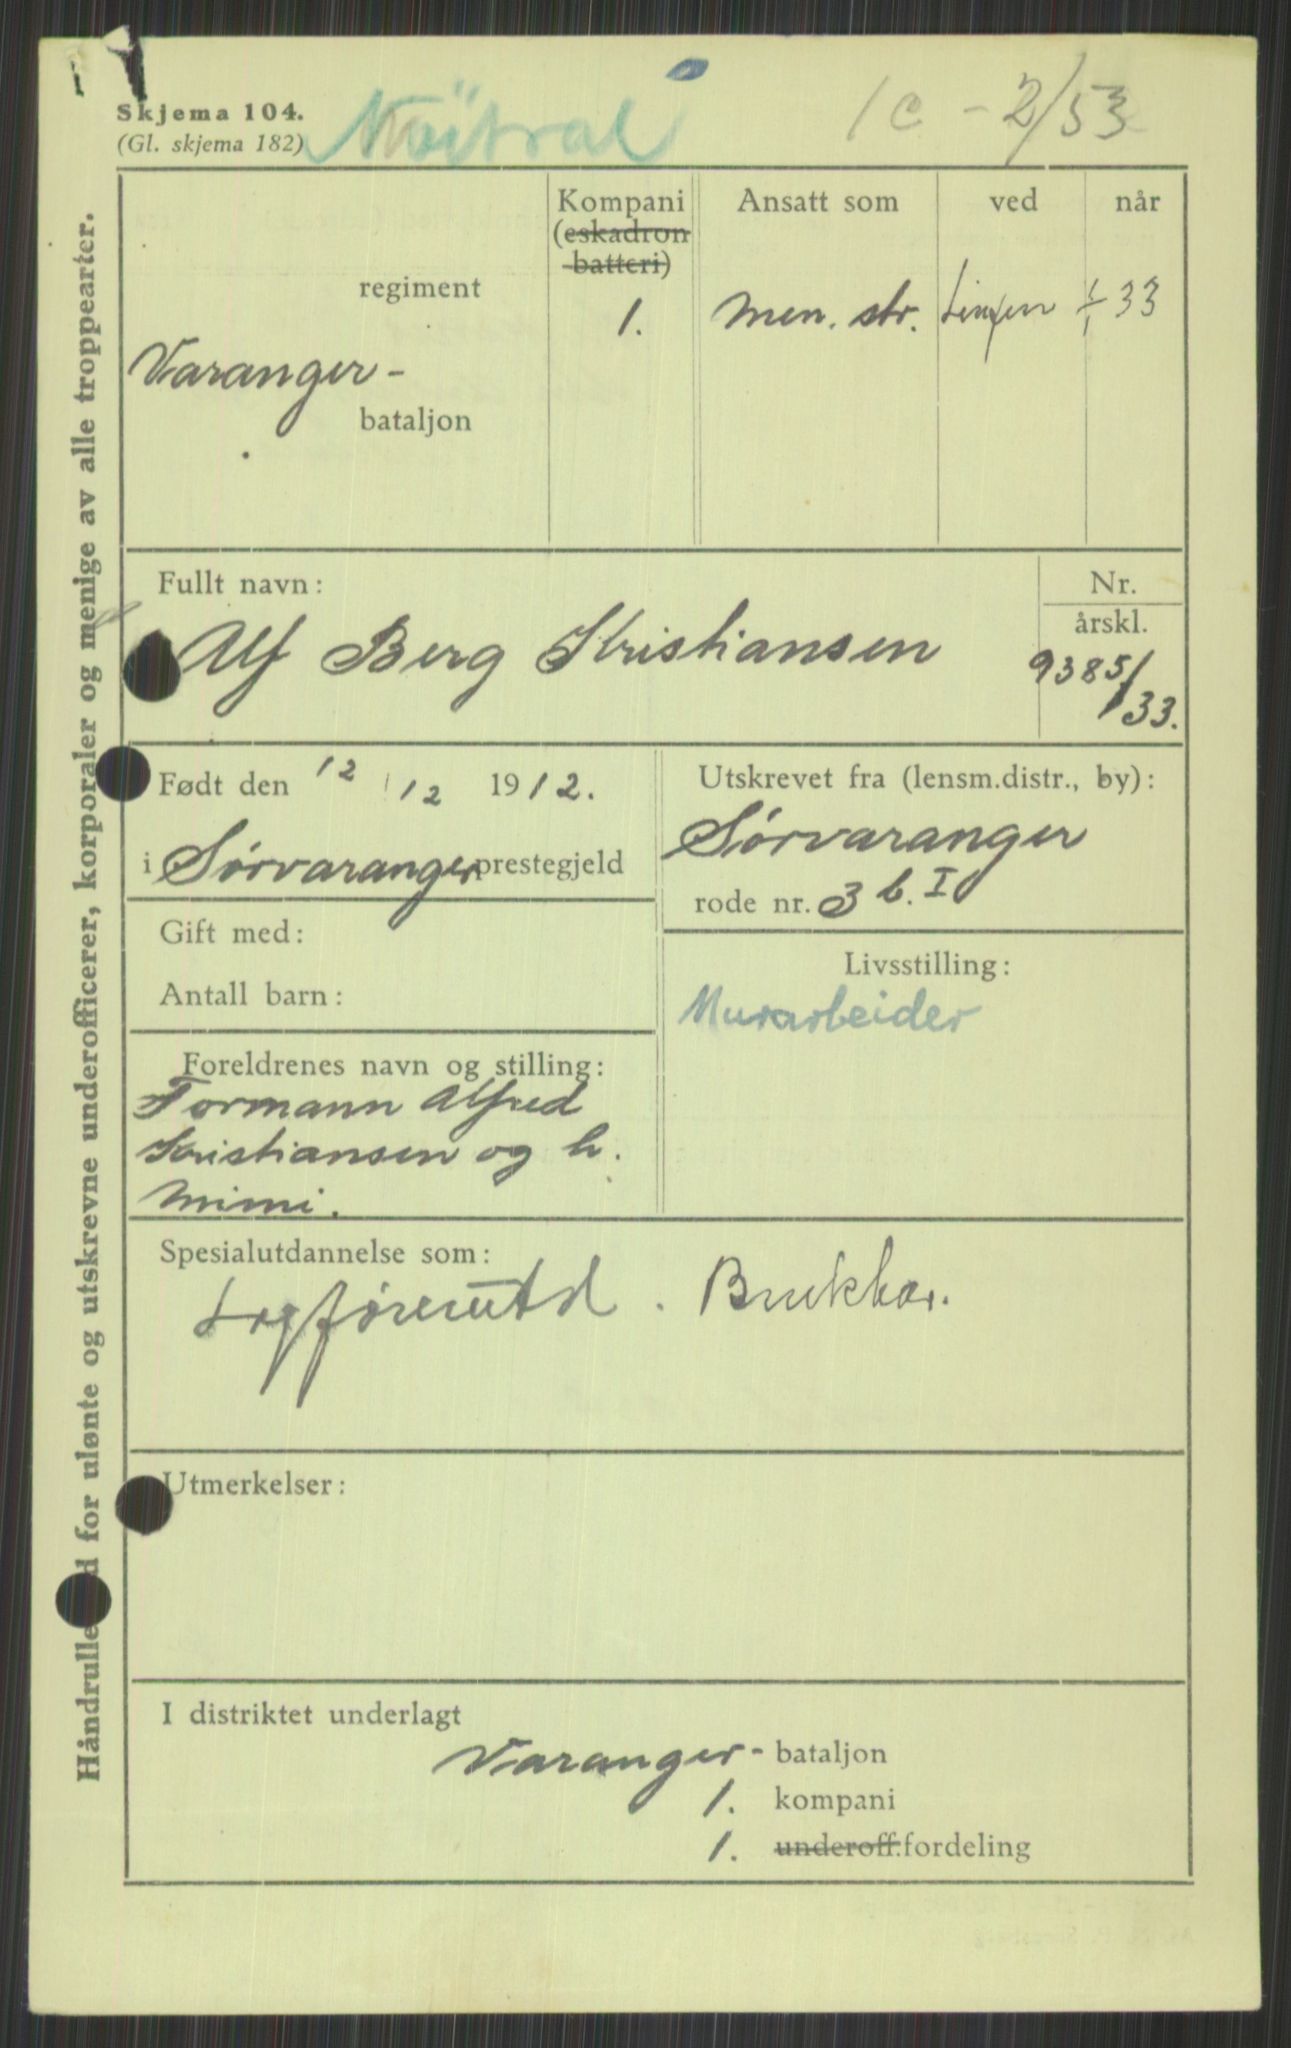 Skjema 104.
(Gl. skjema 182)
Nøitral
1c - 2/53
Håndrulle d for ulønte og utskrevne underofficerer, korporaler og menige av alle troppearter.
regiment
Varanger-
bataljon
Kompani
(eskadron
batteri)
1.
Ansatt som
Men. str.
ved
Linjen
når
1/1 33
Fullt navn:
Alf Berg Kristiansen
Nr.
årskl.
9385/
33.
Født den 12/12 1912.
i Sørvaranger prestegjeld
Utskrevet fra (lensm.distr., by):
Sørvaranger
rode nr. 3 b. I
Gift med:
Antall barn:
Livsstilling:
Murarbeider
Foreldrenes navn og stilling:
Formann Alfred
Kristiansen og h.
Mimi.
Spesialutdannelse som:
Lagførerutd. Brukbar.
Utmerkelser:
I distriktet underlagt
Varanger- bataljon
1. kompani
1. underoff.fordeling